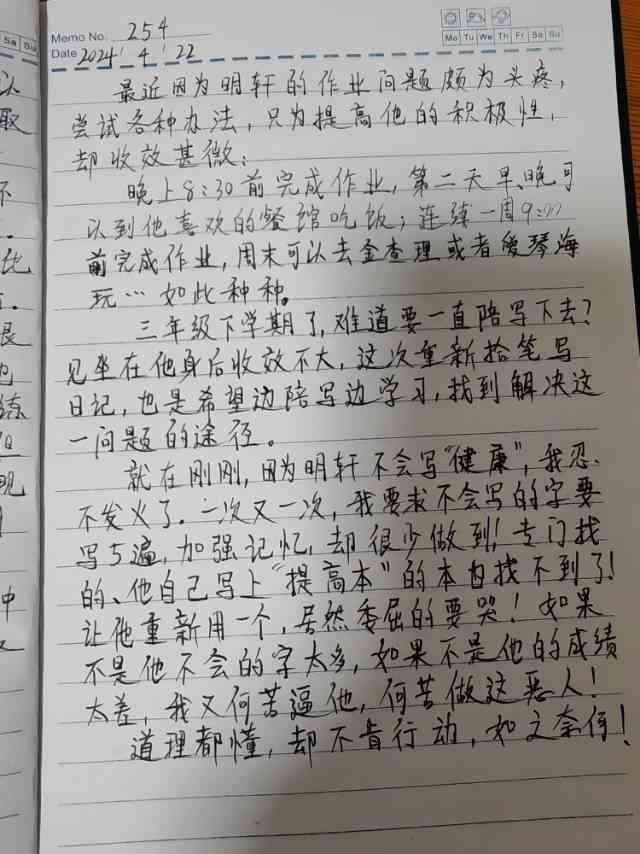 以
取
不
比
艮
也
练
但
现
中
Sa Su
Memo No. 254
Date 2024 / 4 / 22
Mo Tu We Th Fr Sa Su
最近因为明轩的作业问题颇为头疼,
尝试各种办法,只为提高他的积极性,
却收效甚微:
晚上8:30前完成作业,第二天早、晚可
以到他喜欢的餐馆吃饭;连续一周9:00
前完成作业,周末可以去金查理或者爱琴海
玩…如此种种。
三年级下学期了,难道要一直陪写下去?
见坐在他身后收效不大,这次重新拾笔写
日记,也是希望边陪写边学习,找到解决这
一问题的途径。
就在刚刚,因为明轩不会写“健康”,我忍
不发火了.一次又一次,我要求不会写的字要
写5遍,加强记忆,却很少做到!专门找
的、他自己写上“提高本”的本自找不到了!
让他重新用一个,居然委屈的要哭!如果
不是他不会的字太多,如果不是他的成绩
太差,我又何苦逼他,何苦做这恶人!
道理都懂,却不肯行动,如之奈何!